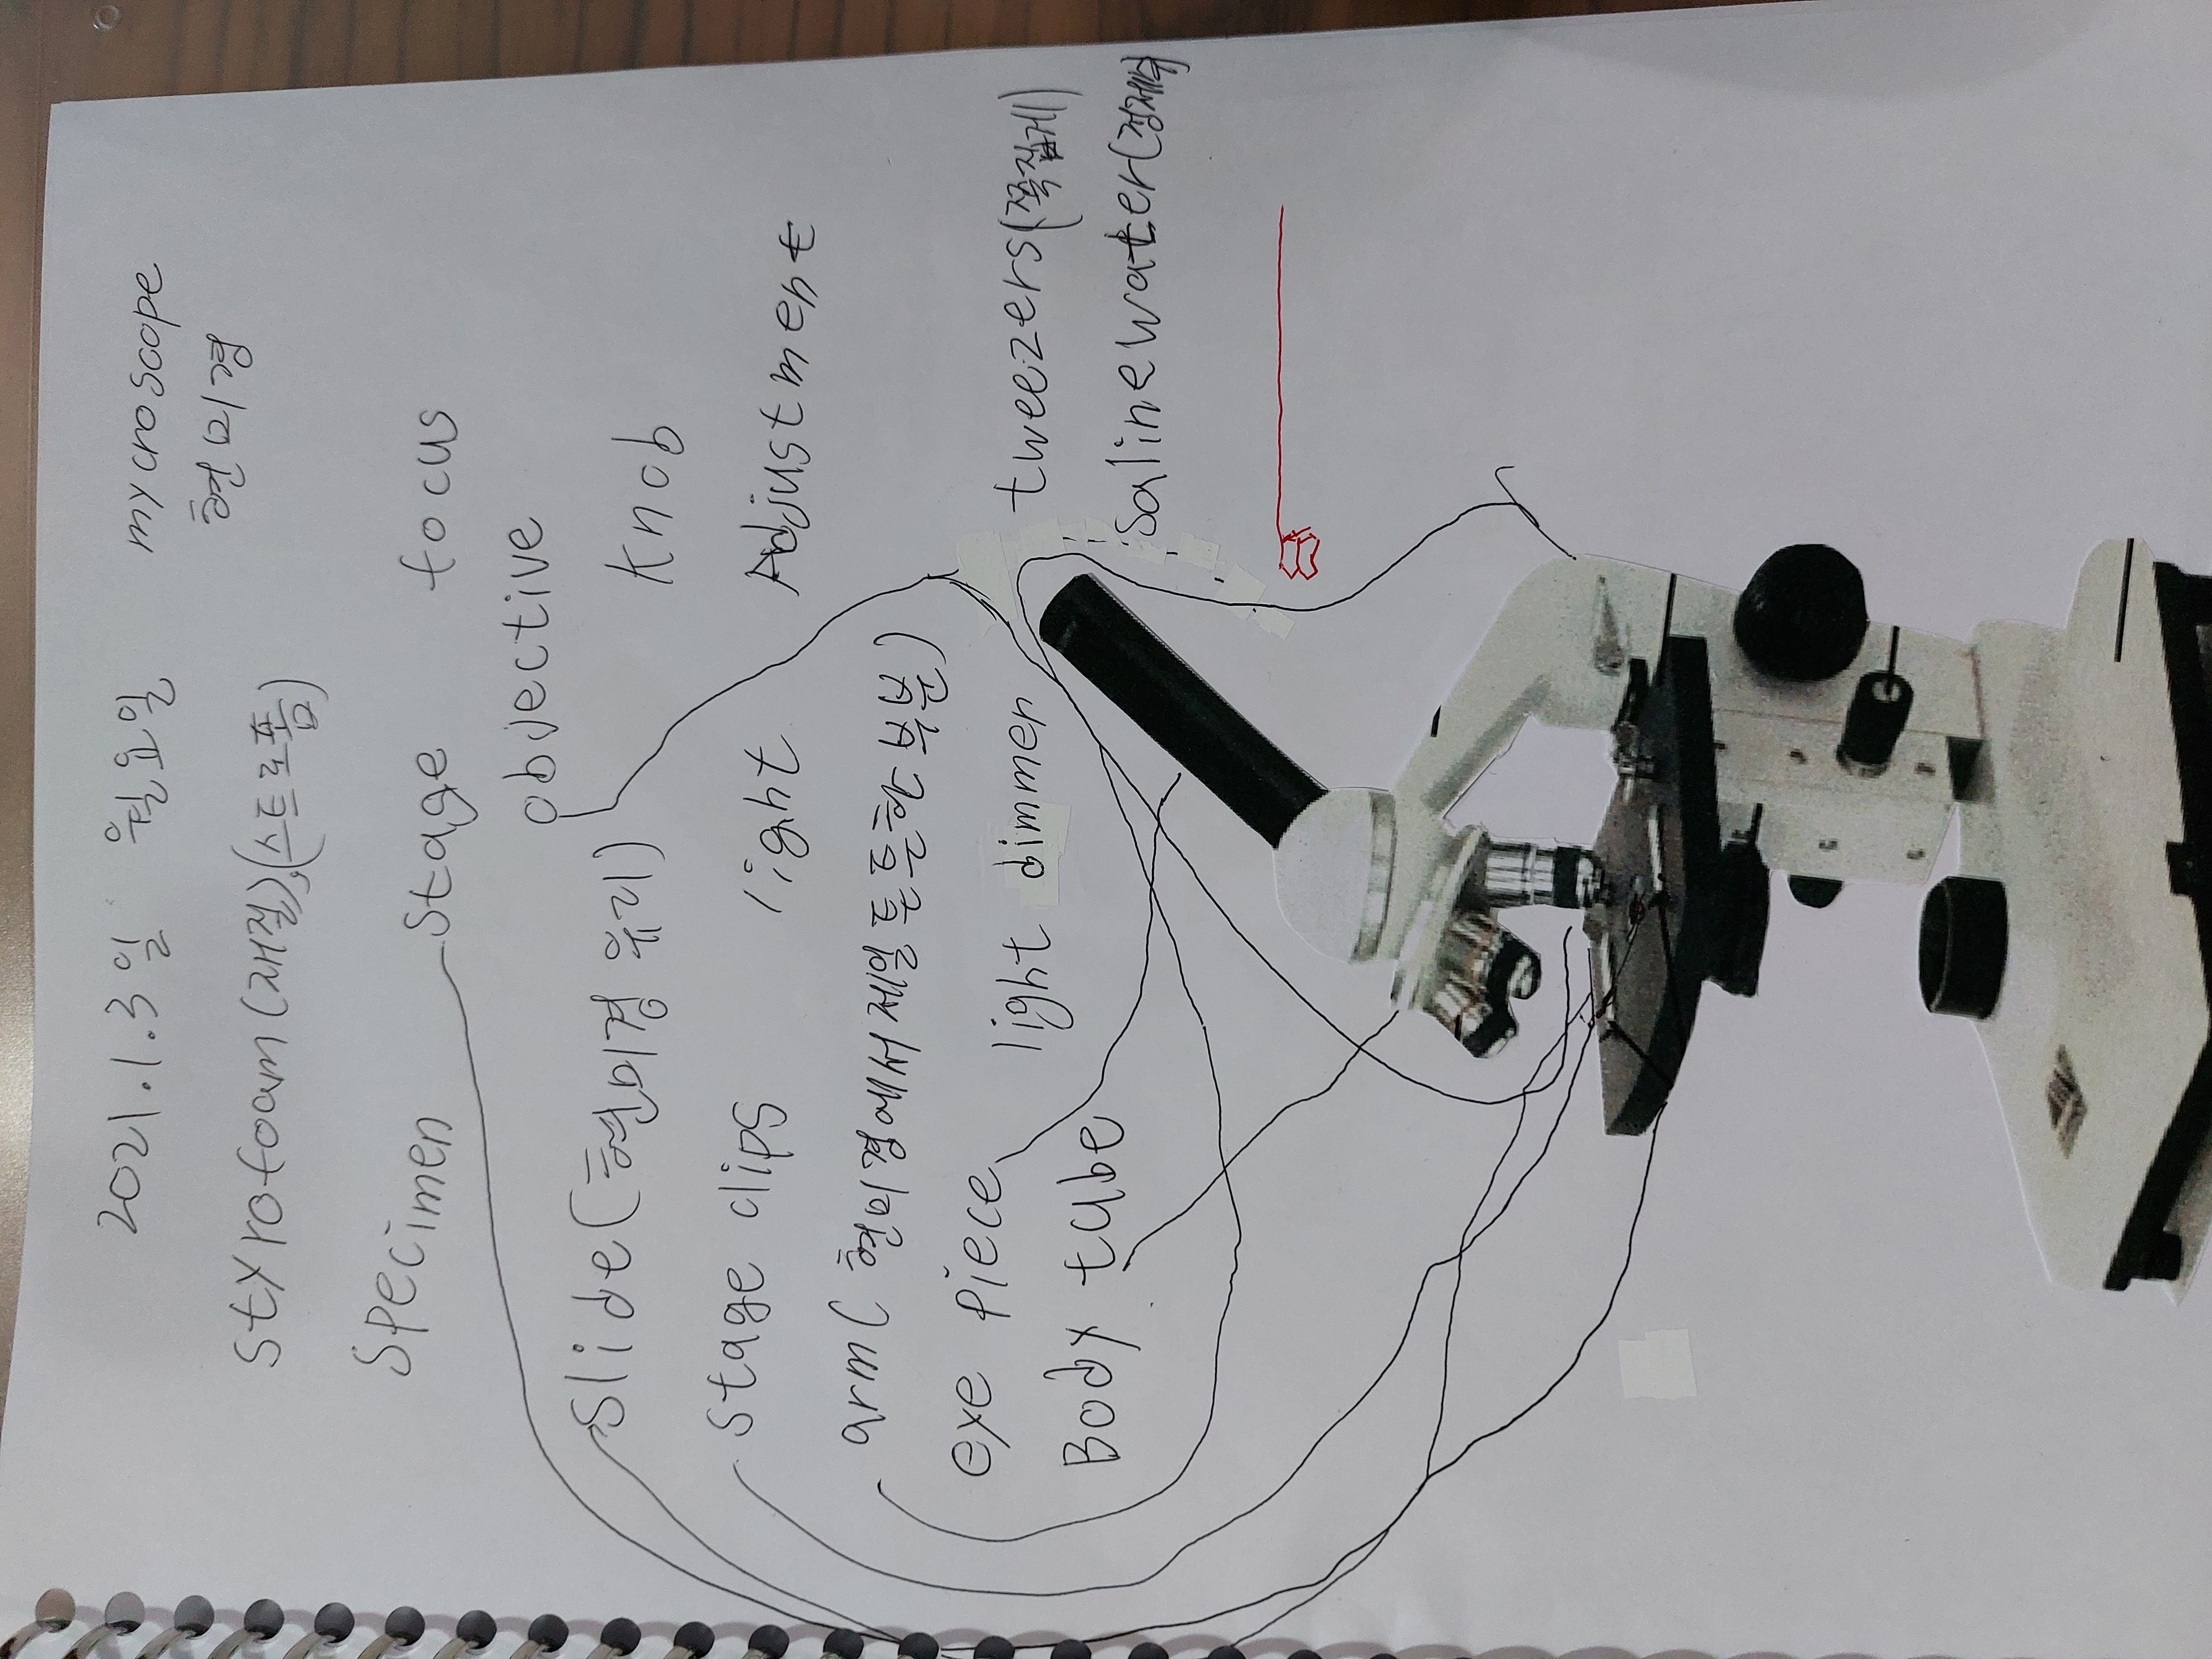 2021.1.3일 월요일 mycroscope
현미경
styrofoam(재질),(스트로폼)
specimen stage focus
objective
slide(현미경 유리) knob
stage clips light Adjustment
arm(현미경에서세일중요로한
eye piece light dimmer tweezers(쪽집게)
Body tube salinewater(정제수